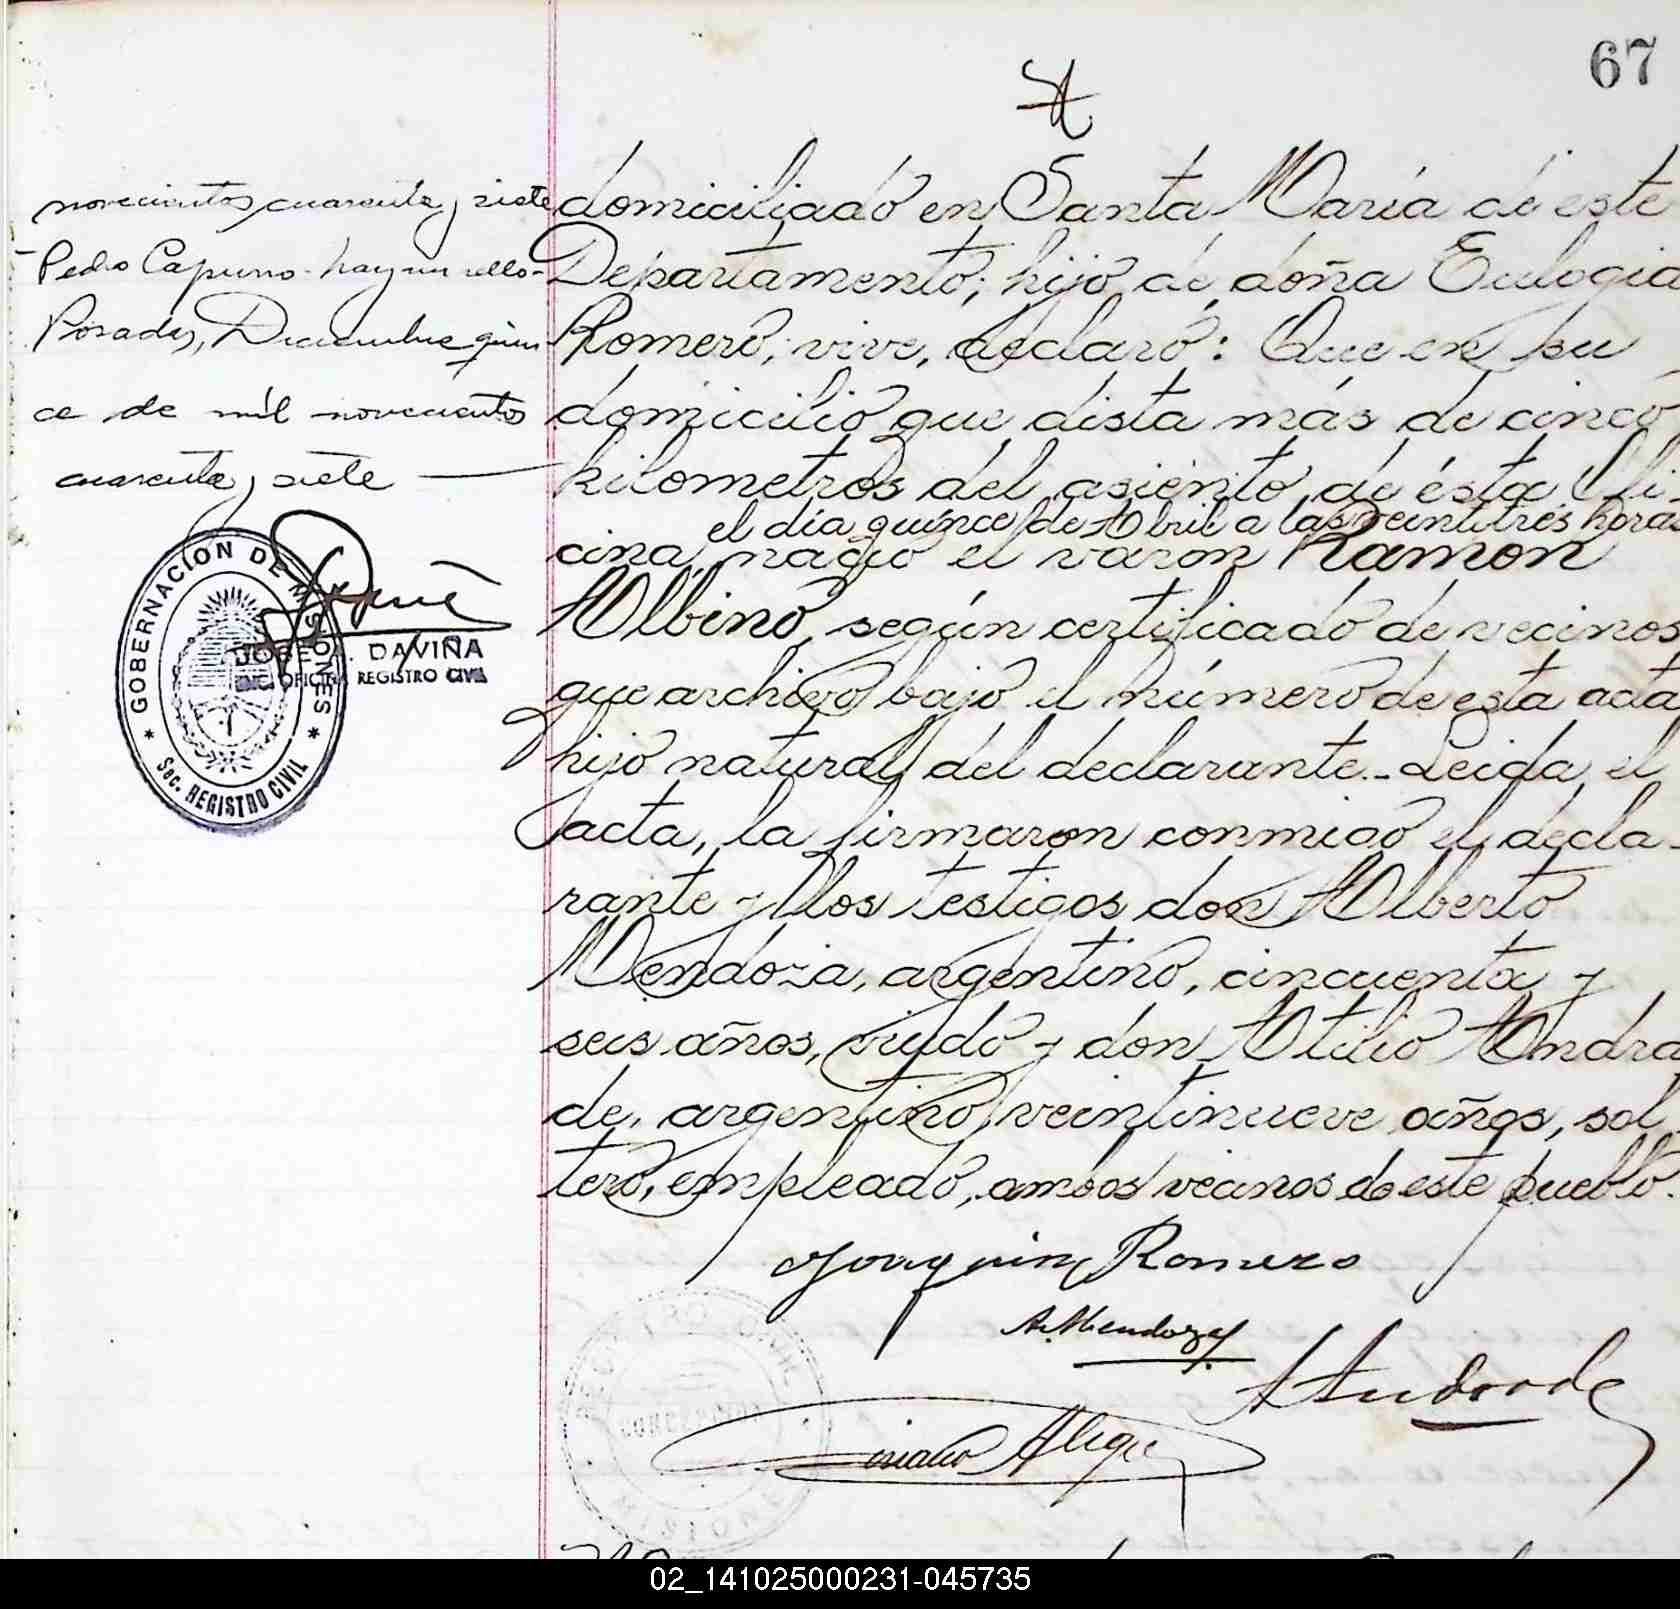 67
novecientos cuarenta y siete
Pedro Capurro - hay un sello -
Posadas, Diciembre quin
ce de mil novecientos
cuarenta y siete
GOBERNACION DE MISIONES
Sec. REGISTRO CIVIL
JOSE A. DAVIÑA
OFICINA REGISTRO CIVIL
domiciliado en Santa María de este
Departamento; hijo de doña Eulogia
Romero, vive, declaró: Que en su
domicilio que dista más de cinco
kilometros del asiento de ésta Ofi
el día quince de Abril a las veintitres horas
cina, nació el varon Ramon
Albino, según certificado de vecinos
que archivo bajo el número de esta acta
hijo natural del declarante. Leida el
acta, la firmaron conmigo el decla-
rante y los testigos don Alberto
Mendoza, argentino, cincuenta y
seis años, viudo y don Atilio Andra
de, argentino, veintinueve años, sol
tero, empleado, ambos vecinos de este pueblo.
Joaquin Romero
A. Mendoza
A Andrade
Ciriaco Alegre
02_141025000231-045735